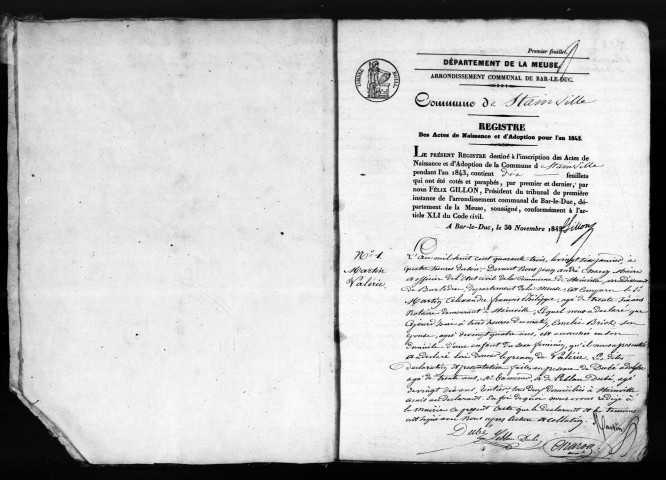 Premier feuillet.
DÉPARTEMENT DE LA MEUSE.
ARRONDISSEMENT COMMUNAL DE BAR-LE-DUC.
Commune de Stainville
REGISTRE
Des Actes de Naissance et d'Adoption pour l'an 1843.
LE PRÉSENT REGISTRE destiné à l'inscription des Actes de
Naissance et d'Adoption de la Commune d Stainville
pendant l'an 1843, contient dix feuillets
qui ont été cotés et paraphés, par premier et dernier, par
nous FÉLIX GILLON, Président du tribunal de première
instance de l'arrondissement communal de Bar-le-Duc, dé-
partement de la Meuse, soussigné, conformément à l'ar-
ticle XLI du Code civil.
A Bar-le-Duc, le 30 Novembre 1842
Gillon
N° 1.
Martin
Valérie.
L'an mil huit cent quarante trois, le vingt six janvier, à
quatre heures du soir, Devant Nous Jean André Maire
et officier de l'état civil de la Commune de Stainville, arrondissement
de Bar le duc, département de la Meuse, est comparu le Sr
Martin Alexandre françois Philippe, agé de trente six ans
Notaire demeurant à Stainville, lequel nous a déclaré que
trois heures du matin, Emelie son
Epouse, agée de vingt quatre ans, est accouchée en son
domicile d'une enfant du sexe féminin, qu'il nous a présenté
et a déclaré lui donner le prénom de Valérie. Les dites
déclaration et présentation faites en présence de Dubé
agé de trente ans, et de Dubé, agé
de vingt six ans, tous les deux domiciliés à Stainville
amis au déclarant. En foi de quoi nous avons rédigé à
la Mairie le présent acte que le déclarant et les témoins
ont signé avec Nous après lecture et collation.
Martin
Dubé